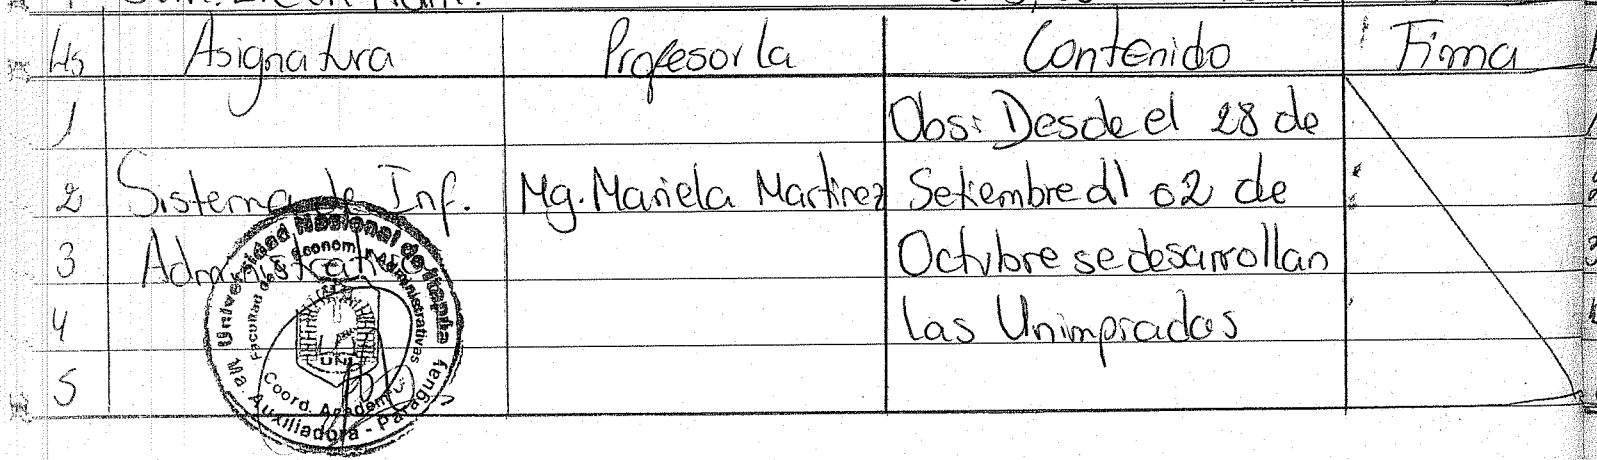 Hs Asignatura Profesor/a Contenido Firma
1 Obs: Desde el 28 de
2 Sistema de Inf. Mg. Mariela Martinez Setiembre al 02 de
3 Administrativo Octubre se desarrollan
4 las Unimpiadas
5
Universidad Nacional de Itapúa
Facultad de C. Econom. y Administrativas
UNI
Coord. Académica
Ma. Auxiliadora - Paraguay